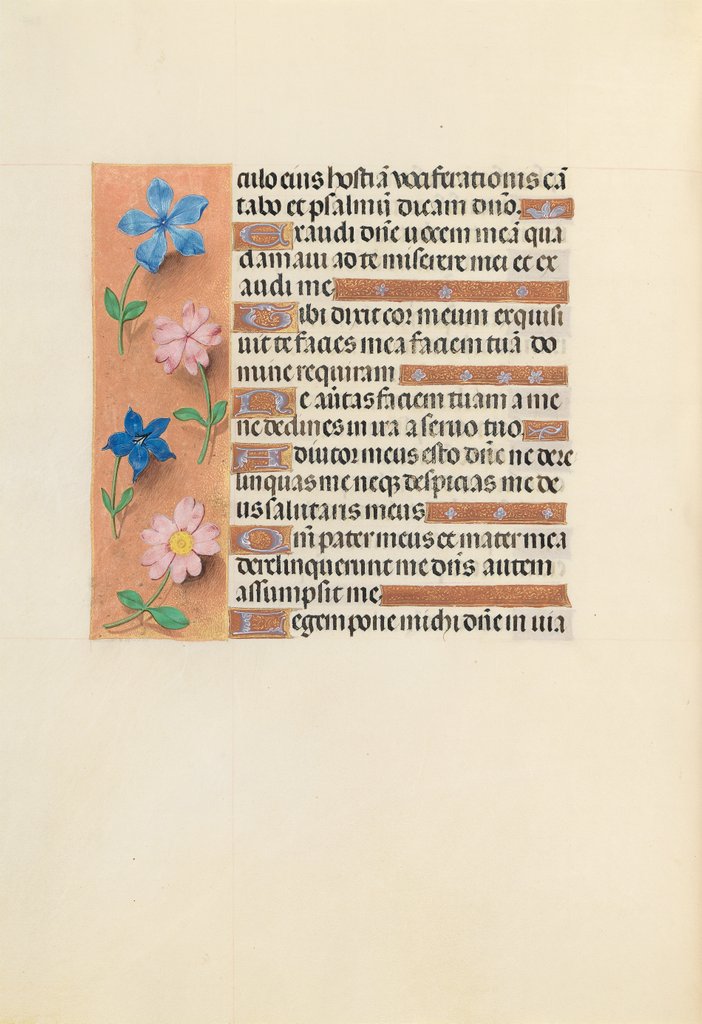 culo eius hostiā vociferationis cā
tabo et psalmū dicam dn̄o.
Exaudi dn̄e vocem meā qua
clamaui ad te miserere mei et ex
audi me
Tibi dixit cor meum exquisi
uit te facies mea faciem tuā do
mine requiram
Ne auertas faciem tuam a me
ne declines in ira a seruo tuo.
Adiutor meus esto dn̄e ne dere
linquas me neqꝫ despicias me de
us salutaris meus
Qm̄ pater meus et mater mea
derelinquerunt me dn̄s autem
assumpsit me
Legem pone michi dn̄e in uia